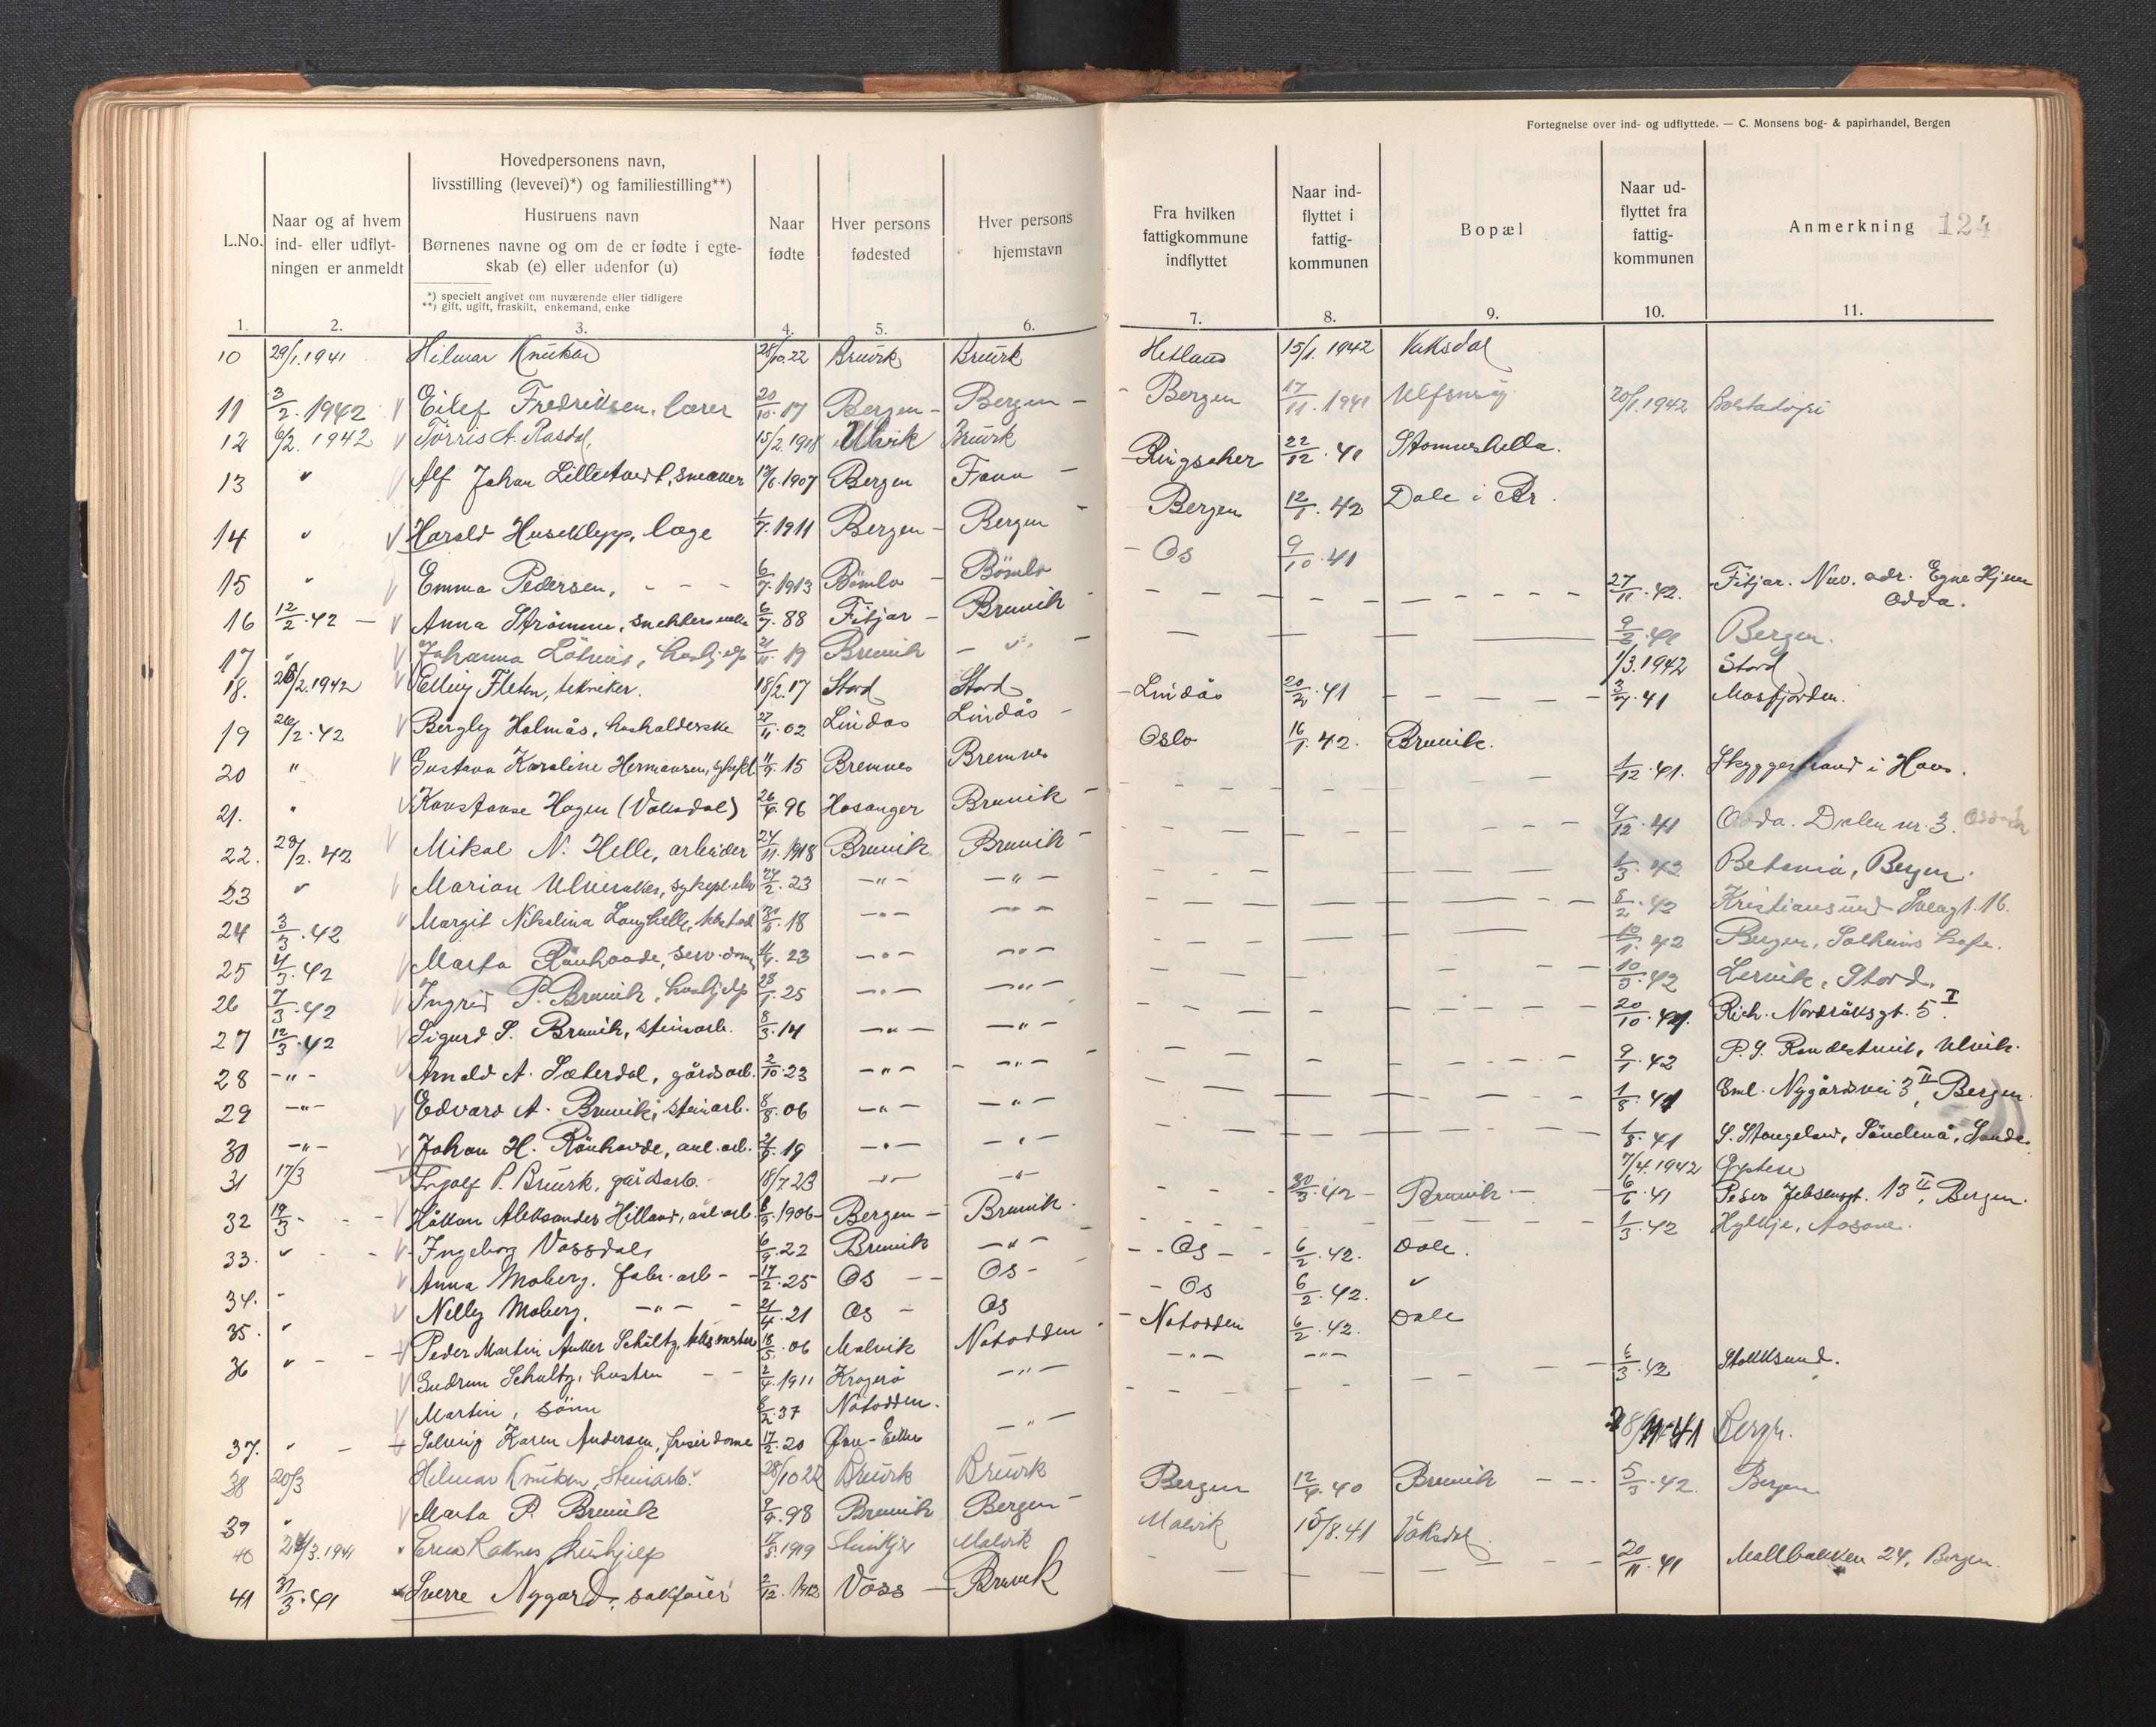 Fortegnelse over ind- og udflyttede. — C. Monsens bog- & papirhandel, Bergen
124
L.No.
1.
Naar og af hvem
ind- eller udflyt-
ningen er anmeldt
2.
Hovedpersonens navn,
livsstilling (levevei)*) og familiestilling**)
Hustruens navn
Børnenes navne og om de er fødte i egte-
skab (e) eller udenfor (u)
*) specielt angivet om nuværende eller tidligere
**) gift, ugift, fraskilt, enkemand, enke
3.
Naar
fødte
4.
Hver persons
fødested
5.
Hver persons
hjemstavn
6.
Fra hvilken
fattigkommune
indflyttet
7.
Naar ind-
flyttet i
fattig-
kommunen
8.
Bopæl
9.
Naar ud-
flyttet fra
fattig-
kommunen
10.
Anmerkning
11.
10 29/1.1941 Hilmar 28/10.22 Bruvik Bruvik Hetland 15/1.1942 Vaksdal
11 3/2.1942 Eilef Fredriksen, lærer 20/10.17 Bergen - Bergen - Bergen 17/11.1941 20/1.1942
12 6/2.1942 Torris A. Rasdal 15/2.1918 Ulvik Bruvik
13 " Alf Johan 1907 Bergen Fana - 22/12.41 Stamneshella.
14 " Harald Huseklepp, læge 1/7.1911 Bergen - Bergen - Bergen 12/1.42 Dale i Br.
15 " Emma Pedersen, - - - 6/7.1913 Bömlo - Bömlo - Os 9/10.41
16 12/2.42 - Anna Strömme, 6/7.88 Fitjar - Bruvik - 27/11.42. Fitjar. Nuv. adr. Egne Hjem
Odda.
17 " Johanna hushjelp 21/11.19 Bruvik - " - Bergen.
18. 26/2.1942 Elling Fleten, tekniker. 18/2.17 Stord Stord 1/3.1942 Stord
19 26/2.42 Bergly Holmås, husholderske 27/11.02 Lindås Lindås - Lindås 20/2.41 3/7.41 Masfjorden.
20 " Gustava Karoline Hermansen, 15 Bremnes Bremnes Oslo 16/1.42. Bruvik.
21. " Konstanse Hagen (Vaksdal) 26/6.96 Hosanger Bruvik - 1/12.41. i Haus.
22. 28/2.42 Mikal N. Helle, arbeider 24/11.1918 Bruvik Bruvik - 9/12.41 Odda. Dalen nr. 3.
23 " Marian 24/2.23 -"- -"- 1/3.42 Betania, Bergen.
24 3/3.42 Margit Nikolina Langhelle, 18 -"- -"- 8/2.42 Kristiansund 16.
25 4/3.42 Marta Rönhovde, serv.dame 23 -"- -"- 42 Bergen, Solheims kafe.
26 7/3.42 Ingrid P. Bruvik, hushjelp 28/1.25 -"- -"- 10/3.42 Lervik, Stord.
27 12/3.42 Sigurd S. Bruvik, steinarb. 8/3.14 -"- -"- 20/10.41. Rich. Nordråksgt. 5 I.
28 -"- Arnold A. Sæterdal, gårdsarb. 2/10.23 -"- -"- 9/1.42 Ulvik.
29 -"- Edvard A. Bruvik, steinarb. 8/8.06 -"- -"- 1/8.41 Eml. Nygårdsvei 3 II, Bergen.
30 -"- Johan H. Rönhovde, anl.arb. 19 -"- -"- 1/8.41 S. Stangeland, Sande.
31 17/3 Ingolf P. Bruvik, gårdsarb. 18/7.23 -"- -"- 7/4.1942
32 19/3 - - Håkon Aleksander Hilland, anl.arb. 1906 Bergen - Bruvik. 30/3.42 - Bruvik - 6/6.41 Peder Jebsensgt. 13 II, Bergen.
33. " - Ingeborg Vassdal, 6/9.22 Bruvik -"- 1/3.42 Hylkje, Aasane.
34. - Anna Moberg. fabr.arb - 17/2.25 Os -- Os - Os - 6/2.42. Dale.
35. " Nelly Moberg. -"- 21/4.21 Os - Os - Os 6/2.42. "
36 " - Peder Martin Anker Schultz, 18/5.06 Malvik Notodden - Notodden 6/2.42. Dale
Gudrun Schultz, hustru - - 2/4.1911 Kragerö -"- -"- -"-
Martin, sönn 37 Notodden. 6/3.42 Stokksund.
37. " - Solveig Karen Andersen, frisérdame 17/2.20 Övre-Eiker -"-
38 20/3 Hilmar steinarb. 28/10 22 Bruvik Bruvik 41 Bergen.
39 " Marta P. Bruvik 98 Bruvik Bergen - Bergen 12/4.40 Bruvik - - 5/3.42. Bergen
40 24/3.1941 hushjelp 1919 Malvik Malvik 15/8.41 Vaksdal
41 31/3.41 Sverre Nygard, sakförer 2/12.1912 Voss - Bruvik 20/11.41 24, Bergen.